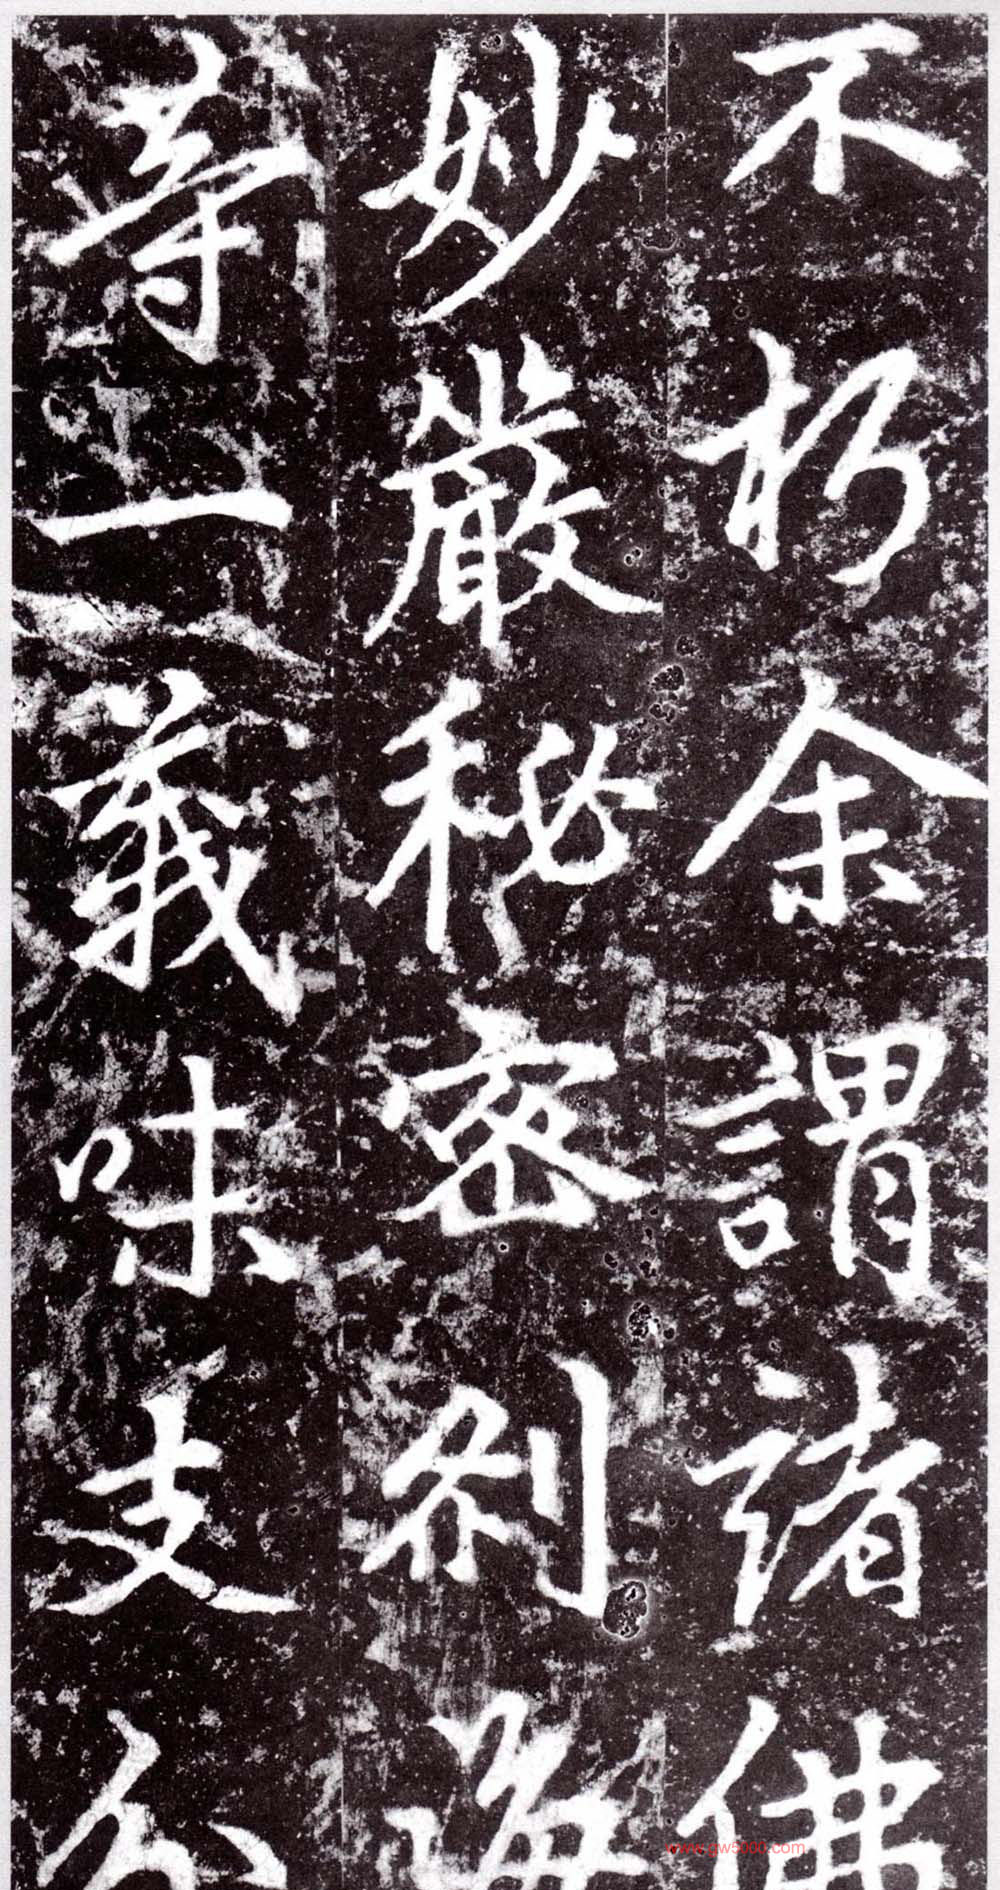 不朽余謂諸佛
妙嚴秘密刹海
等一義味支分
www.gw9000.com